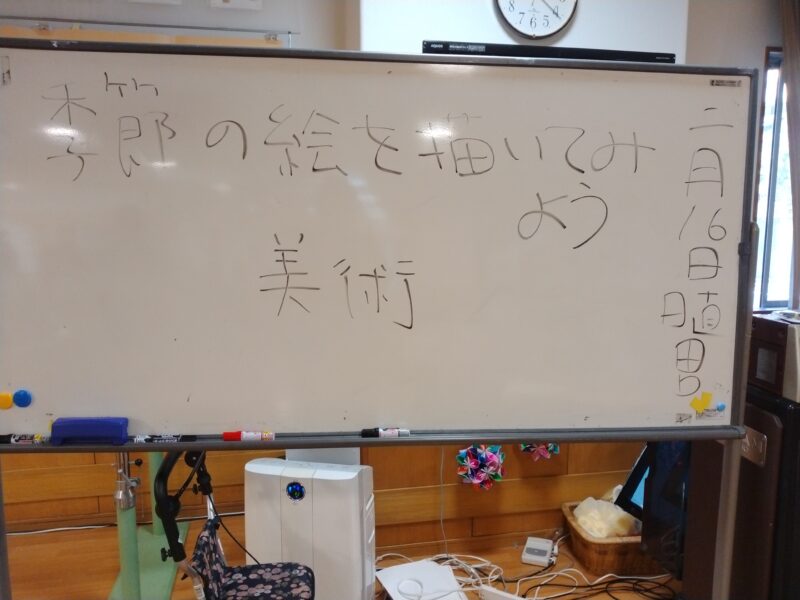 8 7 6 5 4
AQUOS
季節の絵を描いてみ
よう
美術
二月16日
日直